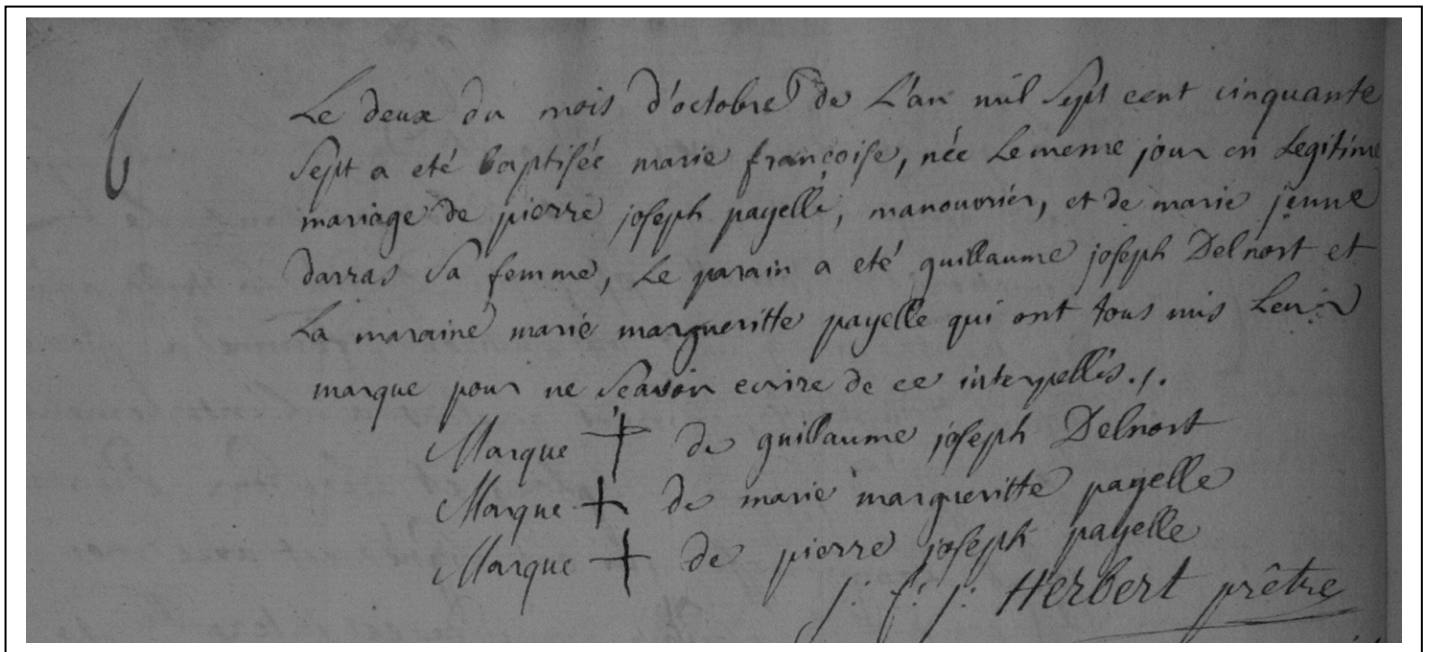 6
Le deux du mois d'octobre de L'an mil sept cent cinquante
sept a eté baptisée marie françoise, née Le meme jour en Legitime
mariage de pierre joseph payelle, manouvrier, et de marie jenne
darras sa femme, Le parain a eté guillaume joseph Delnort et
La maraine marie margueritte payelle qui ont tous mis Leur
marque pour ne sçavoir ecrire de ce interpellés./.
Marque † de guillaume joseph Delnort
Marque + de marie margueritte payelle
Marque + de pierre joseph payelle
Herbert prêtre